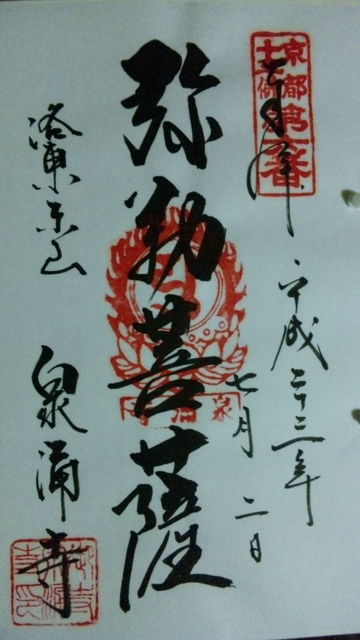 奉拝
平成二十三年
七月二日
弥勒菩薩
洛東東山
泉涌寺
京都
十三佛
第六番